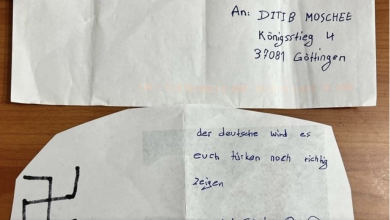 An: DITIB MOSCHEE
Königsstieg 4
37081 Göttingen
der deutsche wird es
euch türken noch richtig
zeigen